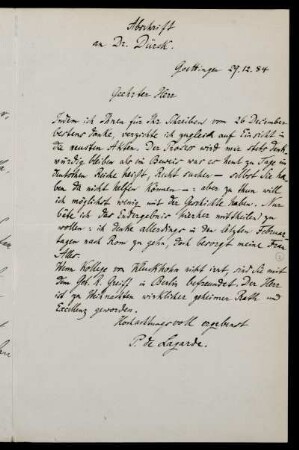 Abschrift
an Dr. Dürck.
Goettingen 29.12.84
Geehrter Herr
Indem ich Ihnen für Ihr Schreiben vom 26 December
bestens danke, verzichte ich zugleich auf Einsicht in
die neusten Akten. Der Prozess wird mir stets denk
würdig bleiben als ein Beweis was es heut zu Tage im
deutschen Reiche heisst, Recht suchen – selbst Sie ha
ben da nicht helfen können –: aber zu thun will
ich möglichst wenig mit der Geschichte haben. Nur
bitte ich das Endergebnis hierher mittheilen zu
wollen: ich denke allerdings in den letzten Februar
tagen nach Rom zu gehn, doch besorgt meine Frau
Alles.
Wenn Kollege von Kluckhohn nicht irrt, sind Sie mit
dem Geh. R. Greiff in Berlin befreundet. Der Herr
ist zu Weihnachten wirklicher geheimer Rath und
Excellenz geworden.
Hochachtungsvoll ergebenst
P. de Lagarde.